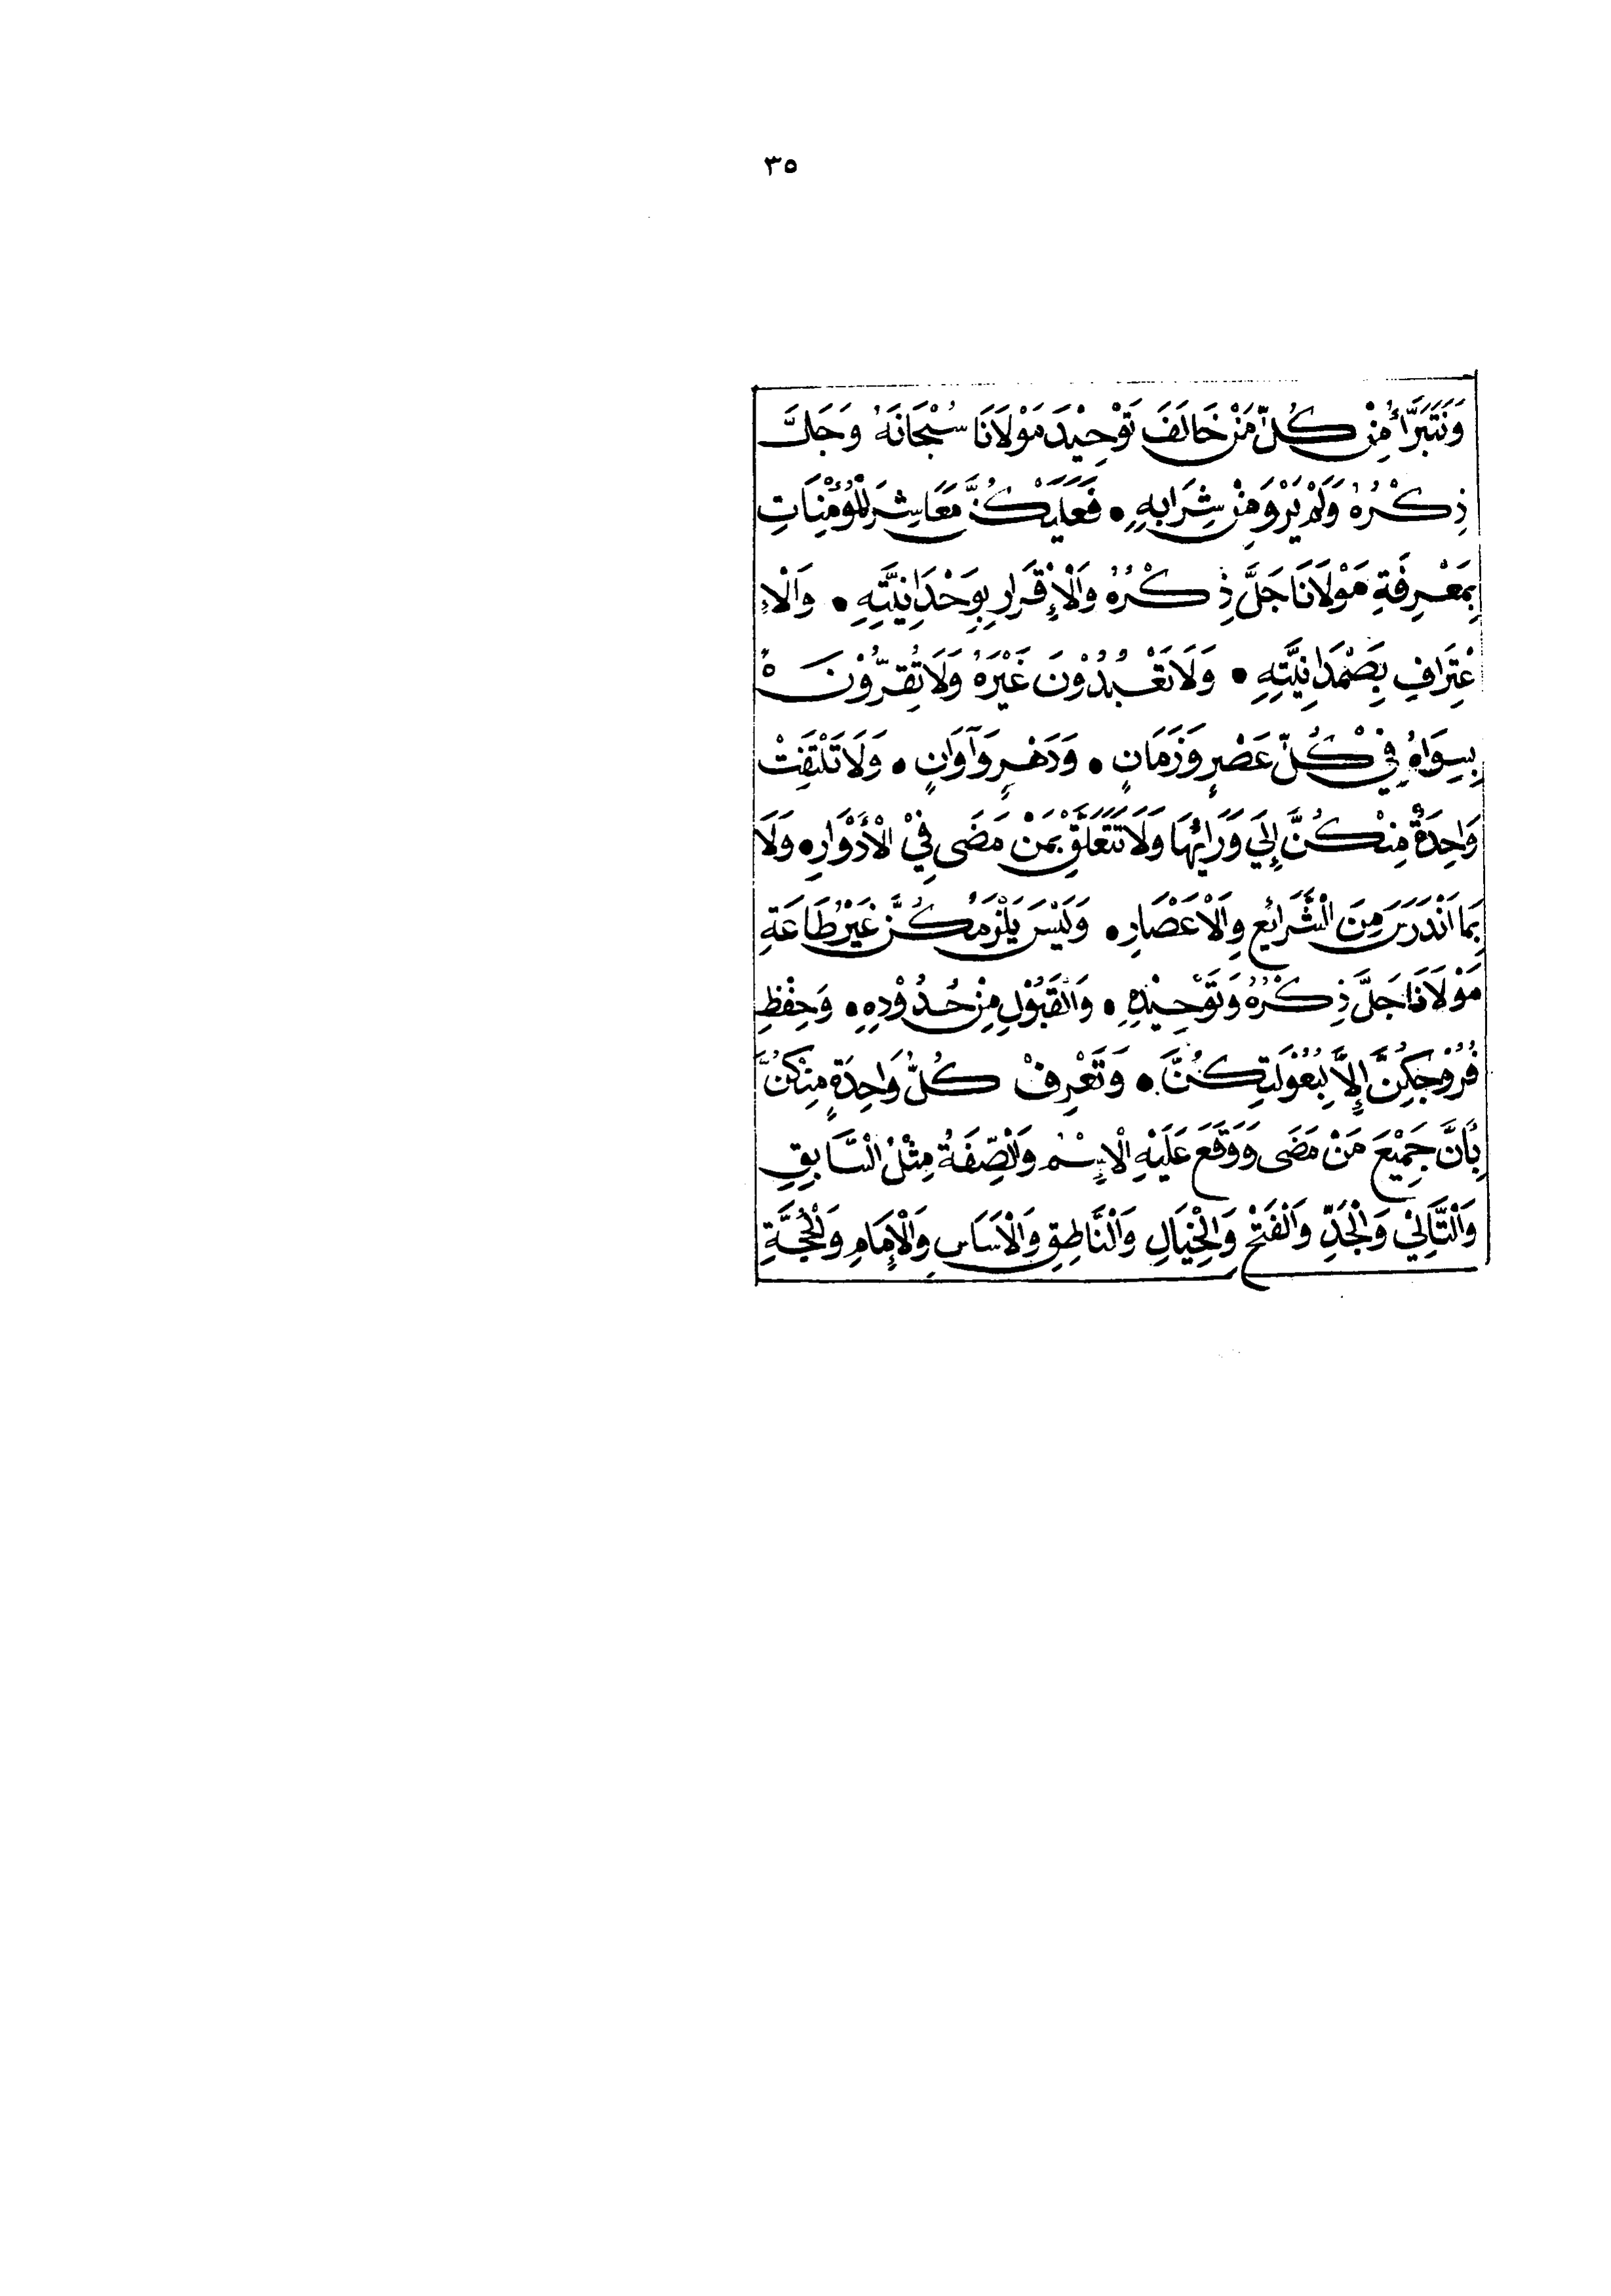 ٣٥
وَنَتَبَرَّأُ مِنْ كُلِّ مَنْ خَالَفَ تَوْحِيْدَ مَوْلَانَا سُبْحَانَهُ وَجَلَّ
ذِكْرُهُ وَلَمْ يَرْوَ مِنْ شِرَابِهِ • فَعَلَيْكُنَّ مَعَاشِرَ الْمُؤْمِنَاتِ
بِمَعْرِفَةِ مَوْلَانَا جَلَّ ذِكْرُهُ وَالْإِقْرَارِ بِوَحْدَانِيَّتِهِ • وَالْاِ
عْتِرَافِ بِصَمَدَانِيَّتِهِ • وَلَا تَعْبُدُوْنَ غَيْرَهُ وَلَا تُقِرُّوْنَ ۀ
بِسِوَاهُ فِيْ كُلِّ عَصْرٍ وَزَمَانٍ • وَدَهْرٍ وَآوَانٍ • وَلَا تَلْتَفِتْ
وَاحِدَةٌ مِنْكُنَّ إِلَي وَرَائِهَا وَلَا تَتَعَلَّقْ بِمَنْ مَضَى فِيْ الْأَدْوَارِ • وَلَا
بِمَا انْدَرَسَ مِنَ الْشَّرَائِعِ وَالْاَعْصَارِ • وَلَيْسَ يَلْزَمُكُنَّ غَيْرُ طَاعَةِ
مَوْلَانَا جَلَّ ذِكْرُهُ وَتَوْحِيْدِهِ • وَالْقَبُوْلِ مِنْ حُدُوْدِهِ • وَحِفْظِ
فُرُوْجِكِنَّ إِلاَّ لِبُعُوْلَتِكُنَّ • وَتَعْرِفْ كُلُّ وَاحِدَةٍ مِنْكُنَّ
بِأَنَّ جَمِيْعَ مَنْ مَضَى وَوَقَعَ عَلَيْهِ الْاِسْمُ وَالْصِّفَةُ مِثْلُ الْسَّابِقِ
وَالْتَّالِيْ وَالْجَدِّ وَالْفَتْحِ وَالْخِيَالِ وَالْنَّاطِقِ وَالْاَسَاسِ وَالْإِمَامِ وَالْحُجَّةِ